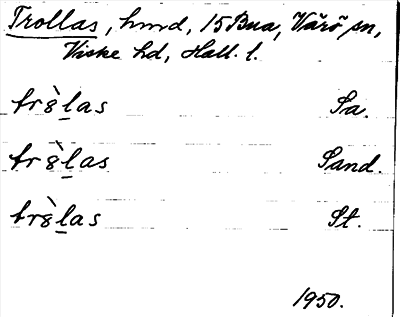 Trollas, hmd, 15 Bua, Värö sn,
Viske hd, Hall. l.
tro̊̀l̲as Sa.
tro̊̀l̲as Sand.
tro̊̀l̲as St.
1950.